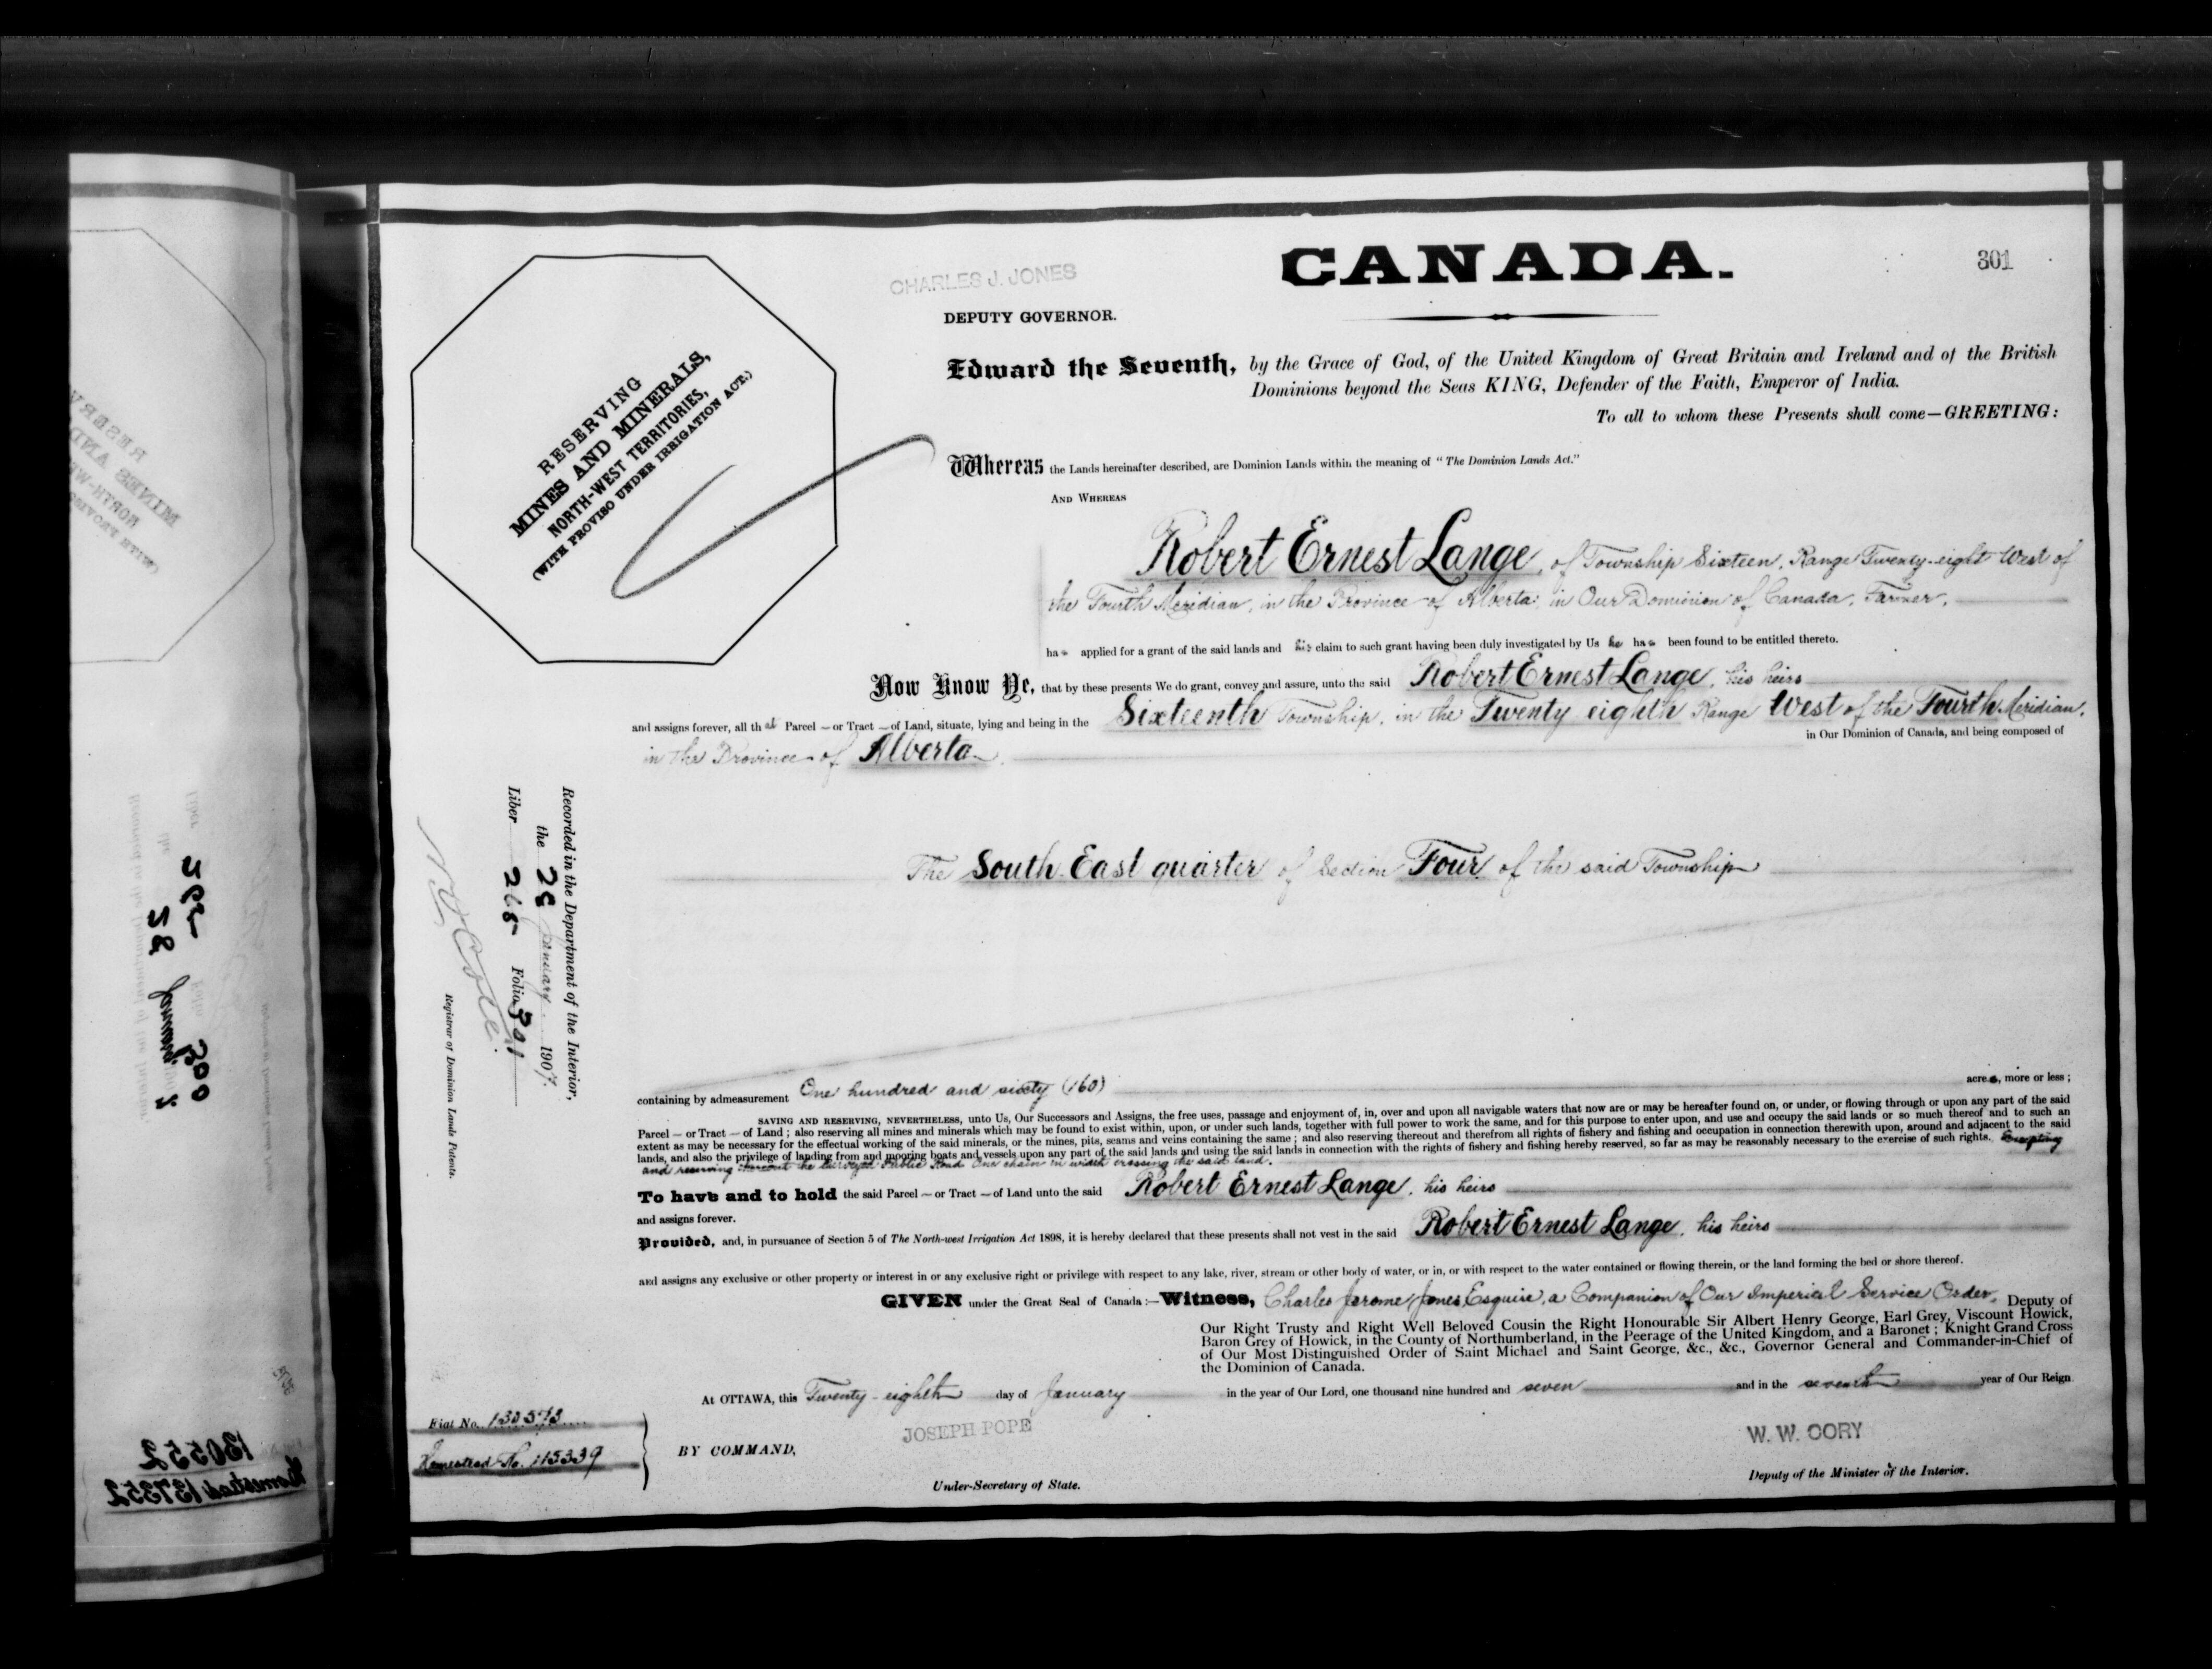 CHARLES J. JONES
CANADA.
301
DEPUTY GOVERNOR.
Edward the Seventh, by the Grace of God, of the United Kingdom of Great Britain and Ireland and of the British
Dominions beyond the Seas KING, Defender of the Faith, Emperor of India.
To all to whom these Presents shall come—GREETING:
RESERVING
MINES AND MINERALS,
NORTH-WEST TERRITORIES,
(WITH PROVISO UNDER IRRIGATION ACT.)
Whereas the Lands hereinafter described, are Dominion Lands within the meaning of "The Dominion Lands Act."
AND WHEREAS
Robert Ernest Lange, of Township Sixteen, Range Twenty-eight West of
the Fourth Meridian, in the Province of Alberta, in Our Dominion of Canada, Farmer,
has applied for a grant of the said lands and his claim to such grant having been duly investigated by Us he has been found to be entitled thereto.
Now Know Ye, that by these presents We do grant, convey and assure, unto the said Robert Ernest Lange, his heirs
and assigns forever, all that Parcel — or Tract — of Land, situate, lying and being in the Sixteenth Township, in the Twenty eighth Range West of the Fourth Meridian,
in the Province of Alberta,
in Our Dominion of Canada, and being composed of
The South East quarter of Section Four of the said Township
Recorded in the Department of the Interior,
the 28 January 1907.
Liber 265 Folio 301
Registrar of Dominion Lands Patents.
containing by admeasurement One hundred and sixty (160) acres, more or less;
SAVING AND RESERVING, NEVERTHELESS, unto Us, Our Successors and Assigns, the free uses, passage and enjoyment of, in, over and upon all navigable waters that now are or may be hereafter found on, or under, or flowing through or upon any part of the said
Parcel — or Tract — of Land; also reserving all mines and minerals which may be found to exist within, upon, or under such lands, together with full power to work the same, and for this purpose to enter upon, and use and occupy the said lands or so much thereof and to such an
extent as may be necessary for the effectual working of the said minerals, or the mines, pits, seams and veins containing the same; and also reserving thereout and therefrom all rights of fishery and fishing and occupation in connection therewith upon, around and adjacent to the said
lands, and also the privilege of landing from and mooring boats and vessels upon any part of the said lands and using the said lands in connection with the rights of fishery and fishing hereby reserved, so far as may be reasonably necessary to the exercise of such rights. Excepting
and reserving thereout the surveyed Public Road One chain in width crossing the said land.
To have and to hold the said Parcel — or Tract — of Land unto the said Robert Ernest Lange, his heirs
and assigns forever.
Provided, and, in pursuance of Section 5 of The North-west Irrigation Act 1898, it is hereby declared that these presents shall not vest in the said Robert Ernest Lange, his heirs
and assigns any exclusive or other property or interest in or any exclusive right or privilege with respect to any lake, river, stream or other body of water, or in, or with respect to the water contained or flowing therein, or the land forming the bed or shore thereof.
GIVEN under the Great Seal of Canada:—Witness, Charles Jerome Jones, Esquire, a Companion of Our Imperial Service Order, Deputy of
Our Right Trusty and Right Well Beloved Cousin the Right Honourable Sir Albert Henry George, Earl Grey, Viscount Howick,
Baron Grey of Howick, in the County of Northumberland, in the Peerage of the United Kingdom, and a Baronet; Knight Grand Cross
of Our Most Distinguished Order of Saint Michael and Saint George, &c., &c., Governor General and Commander-in-Chief of
the Dominion of Canada.
At OTTAWA, this Twenty-eighth day of January in the year of Our Lord, one thousand nine hundred and seven and in the seventh year of Our Reign
Fiat No. 130573
Homestead No. 115339
BY COMMAND,
JOSEPH POPE
Under-Secretary of State.
W. W. CORY
Deputy of the Minister of the Interior.
130552
Homestead 137352